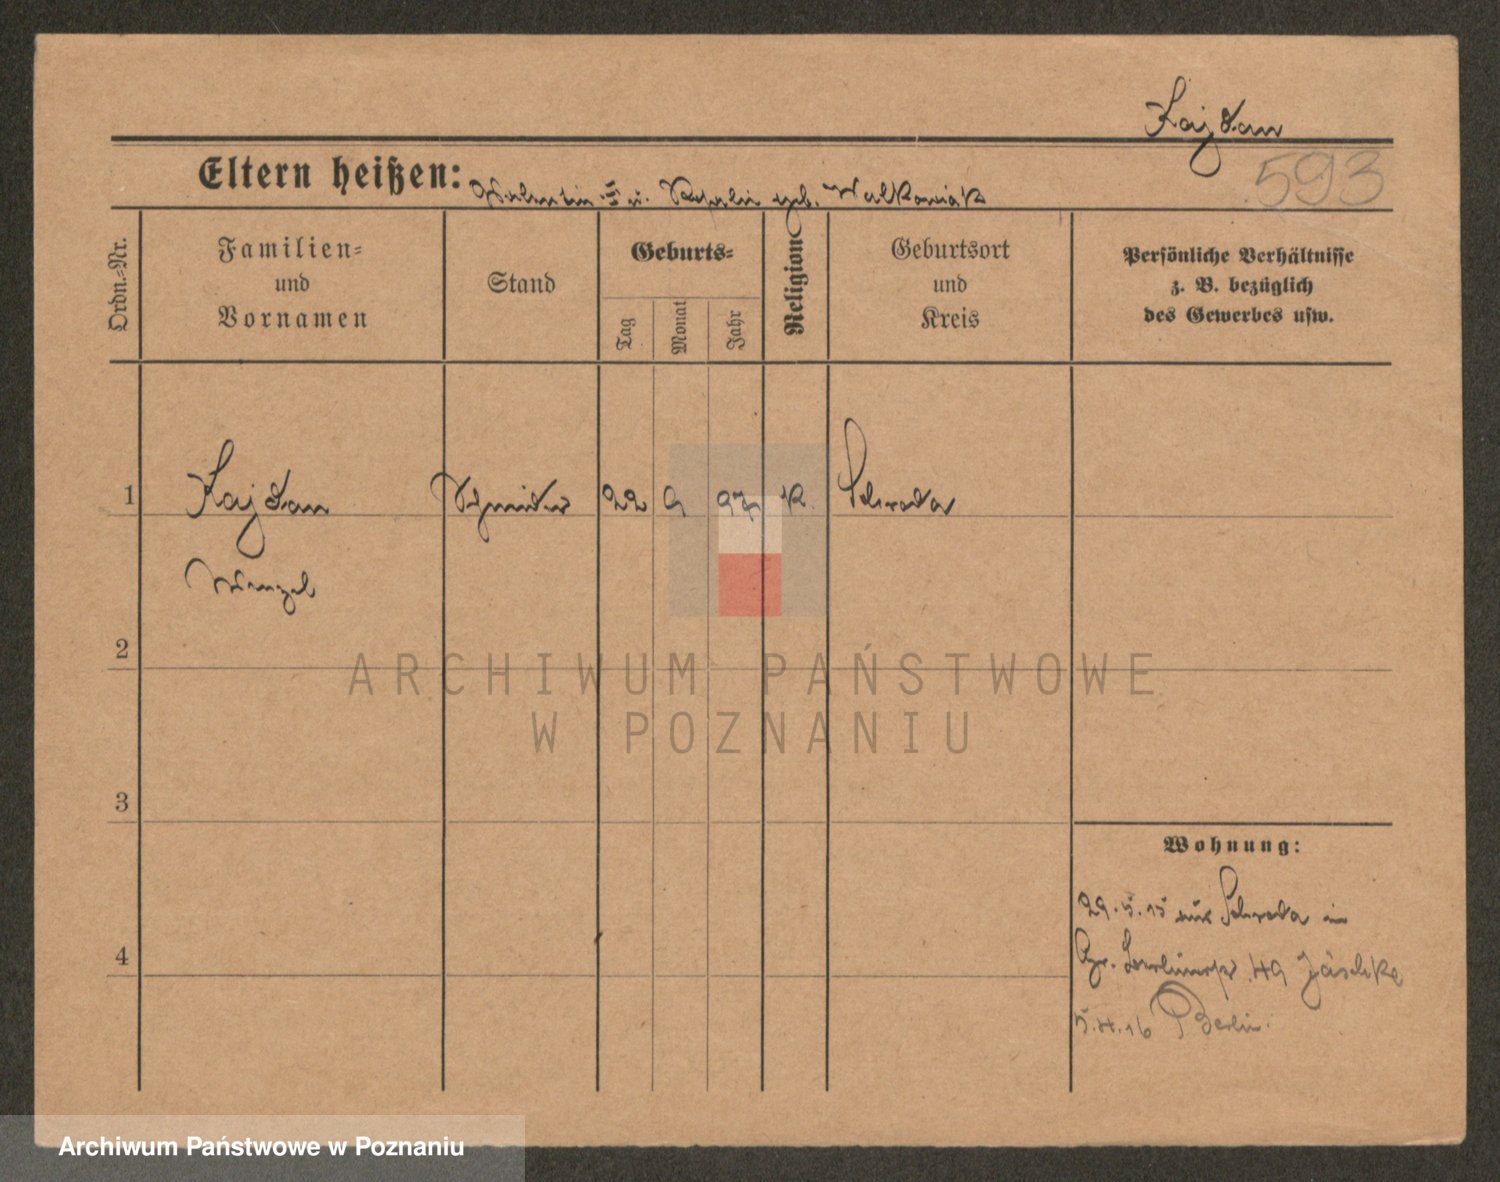 Kajdan
593
Eltern heißen: Valentin u. geb. Walkowiak
Ordn.=Nr.
Familien= und Vornamen
Stand
Geburts=
Tag
Monat
Jahr
Religion
Geburtsort und Kreis
Persönliche Verhältnisse z. B. bezüglich des Gewerbes usw.
1 Kajdan Schneider 22 9 97 K. Schroda
Wenzel
2
ARCHIWUM PAŃSTWOWE
W POZNANIU
3
Wohnung:
29.5.15 aus Schroda in
49 Jäschke
4
5.4.16 Berlin.
Archiwum Państwowe w Poznaniu